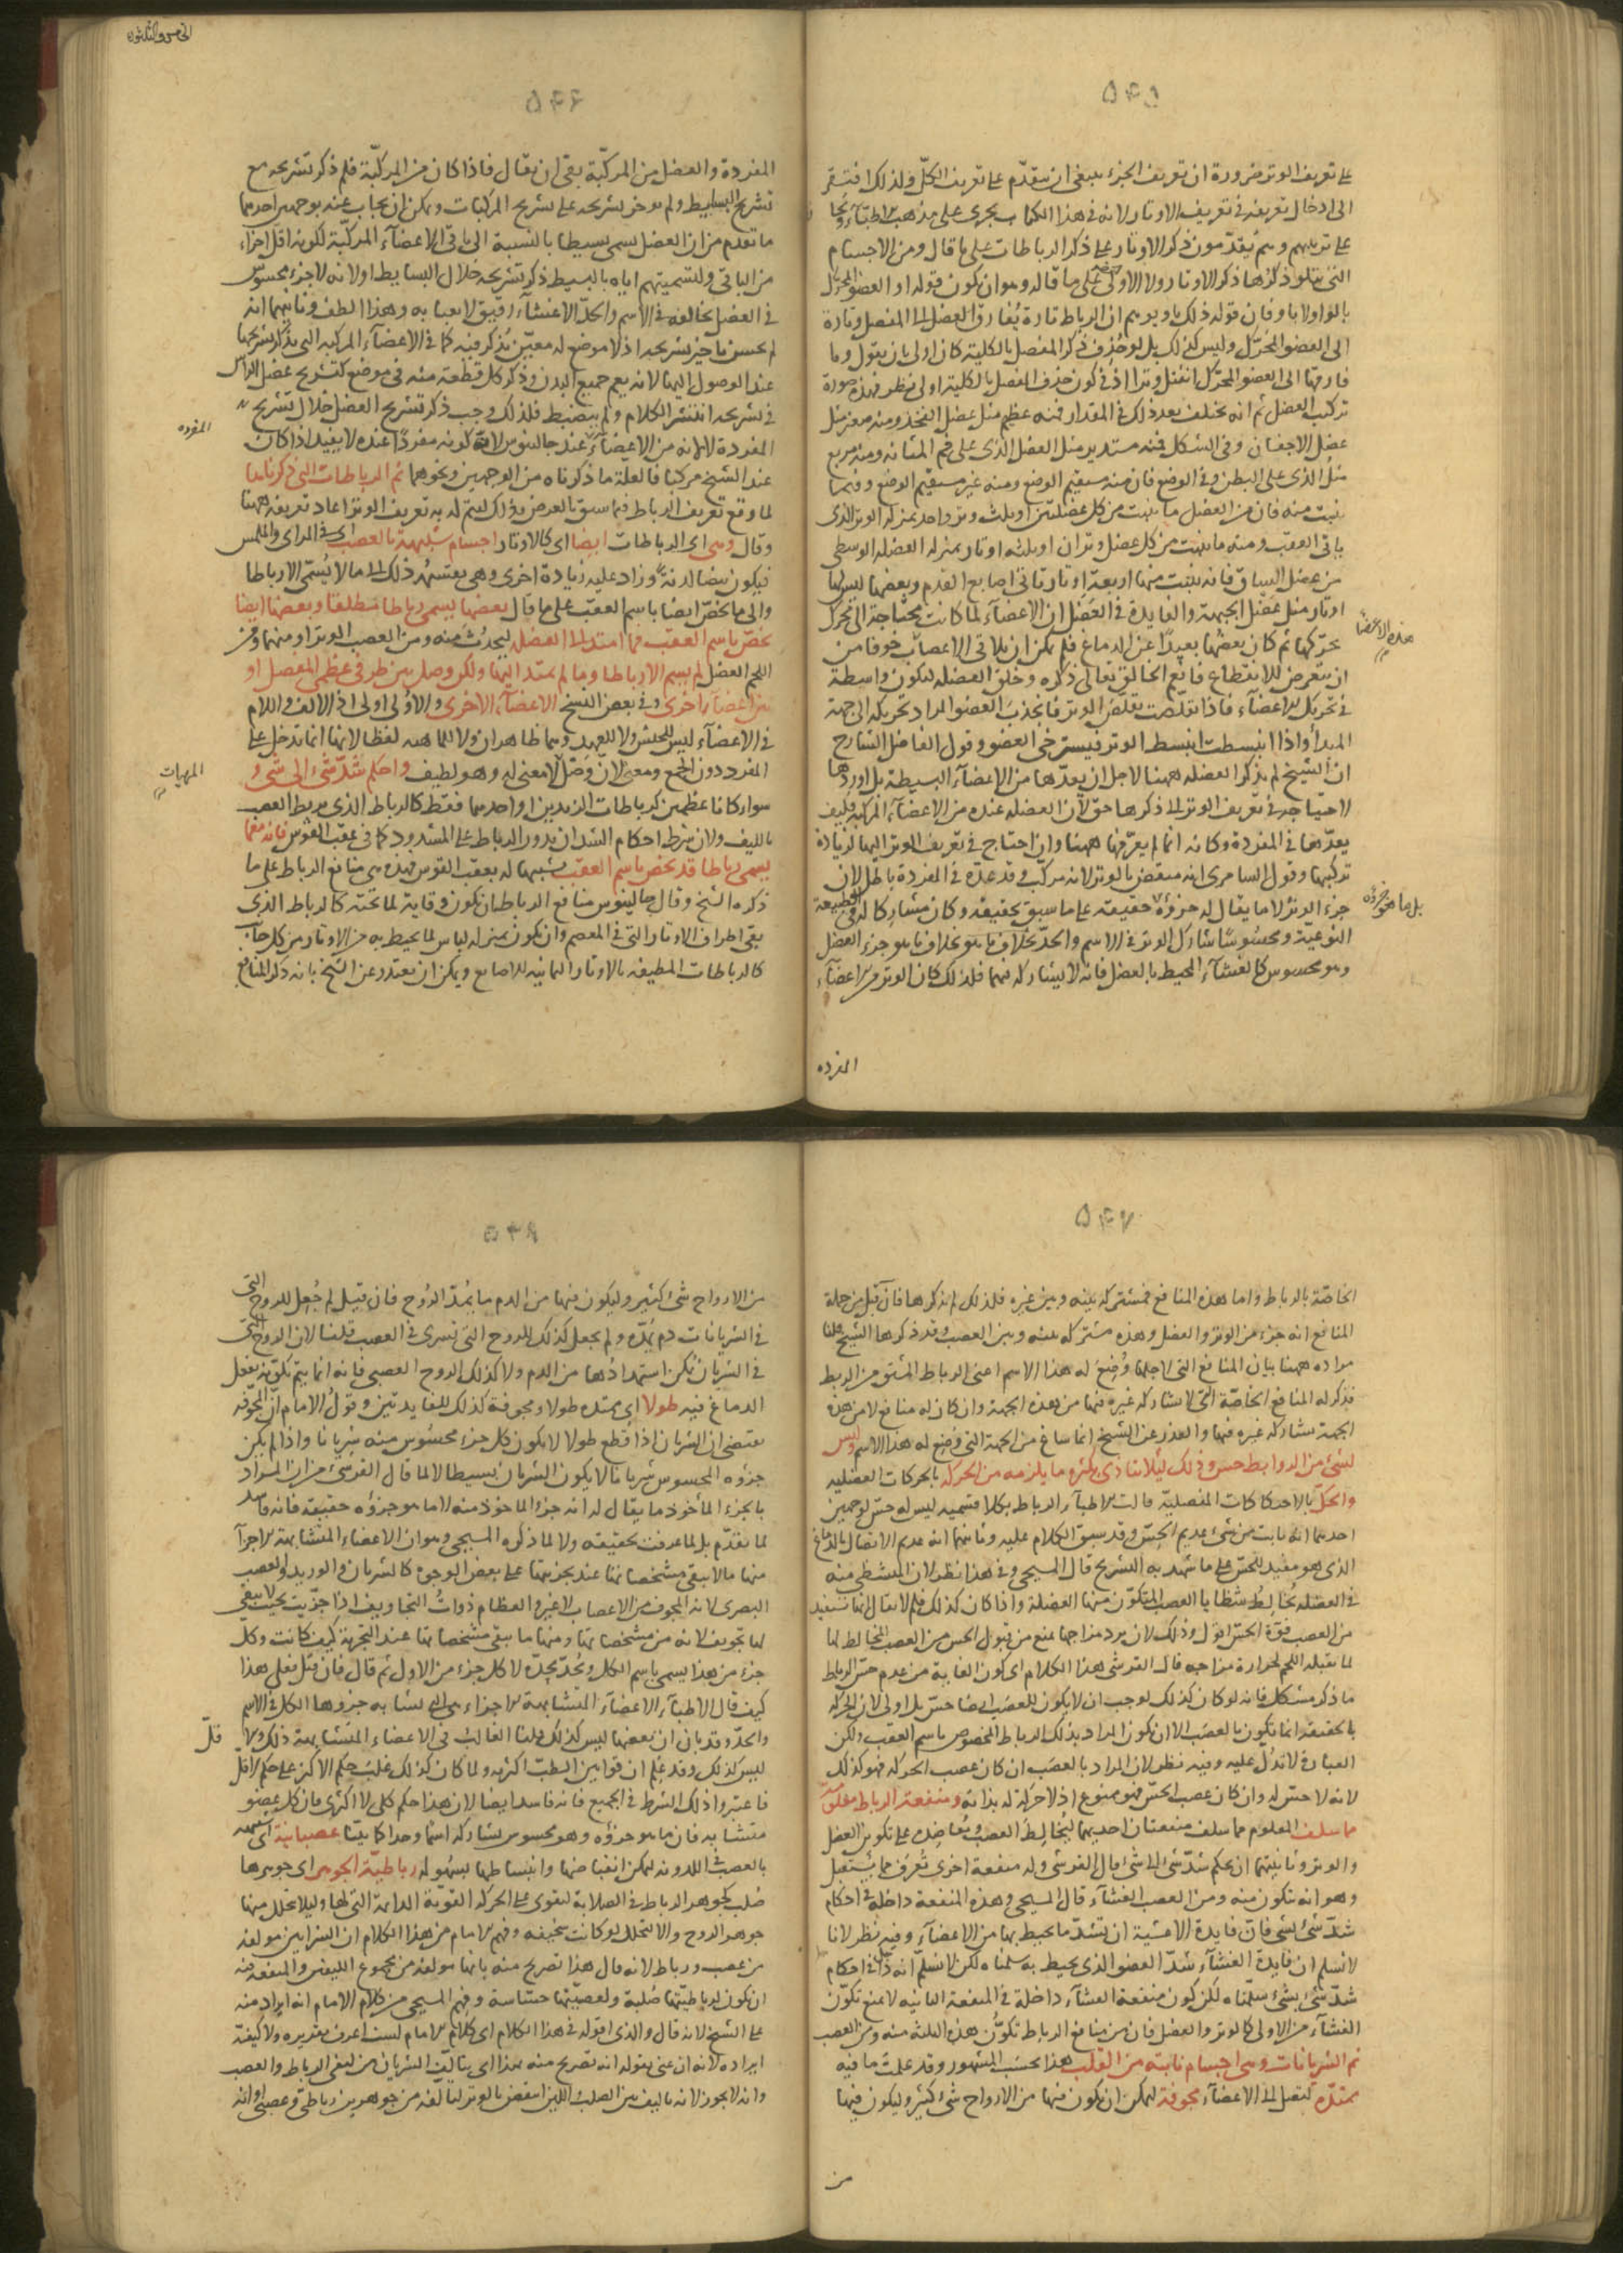 على تعريف الوتر ضرورة ان تعريف الجزء ينبغي ان يتقدّم على تعريف الكلّ ولذلك افتقر
الى ادخال تعريفه في تعريف الاوتار لانه في هذا الكتاب يجرى على مذهب الاطبّاء
على ترتيبهم وهم يقدّمون ذكر الاوتار على ذكر الرباطات على ما قال ومن الاجسام
التي يتلو ذكرها ذكر الاوتار ولا الاولى على ما قاله وهو ان يكون قوله او العضو المحرّك
بالواو لا باو فان قوله ذلك باو يوهم ان الرباط تارة يُفارق العضل الى المفصل وتارة
الى العضو المحرّك وليس كذلك بل لو حُذف ذكر المفصل بالكلية كان اولى بان يقول وما
فارقها الى العضو المحرّك انفتل وترا اذ في كون حذف المفصل بالكلية اولى نظر فهذه صورة
تركيب العضل ثم انه يختلف بعد ذلك في المقدار فمنه عظيم مثل عضل الفخذ ومنه صغير مثل
عضل الاجفان وفي الشكل فمنه مستدير مثل العضل الذى على فم المثانه ومنه مربع
مثل الذى على البطن وفي الوضع فان منه مستقيم الوضع ومنه غير مستقيم الوضع وفيما
ينبت منه فان من العضل ما ينبت من كل عضلتين او ثلث وتر واحد بمنزلة الوتر الذى
ياتى العقب ومنه ما ينبت من كل عضل وتران او ثلثه اوتار بمنزله العضله الوسطى
من عضل الساق فانه ينبت منها اربعة اوتار تاتى اصابع القدم وبعضها ليس لها
اوتار مثل عضل الجبهة والفايدة في العضل ان الاعضاء لما كانت محتاجة الى محرّك
يحرّكها ثم كان بعضها بعيدًا عن الدماغ فلم يمكن ان يلاقى الاعصاب خوفا من
هذه الاعضا
ان تتعرض للانقطاع فانعم الخالق تعالى ذكره وخلق العضله لتكون واسطة
في تحريك الاعضاء فاذا تقلّصت تقلّص الوتر فانجذب العضو المراد تحريكه الى جهة
المبدأ واذا انبسطت انبسط الوتر فيسترخى العضو وقول الفاضل الشارح
ان الشيخ لم يذكر العضله ههنا لاجل ان يعدّها من الاعضاء البسيطة بل اوردها
لاحتياجه في تعريف الوتر الى ذكرها حق لان العضله عنده من الاعضاء المركبة فكيف
يعدّها في المفردة وكانه انما لم يعرّفها ههنا وان احتاج في تعريف الوتر اليها لزيادة
تركيبها وقول السامرى انه منتقض بالوتر لانه مركّب وقد عدّه في المفردة باطل لان
جزء الوتر لا ما يقال له جزؤه حقيقة على ما سبق تحقيقه وكان مشاركا له في الطبيعة
بل ما هو جزؤه
النوعية ومحسوسًا شارك الوتر في الاسم والحدّ بخلاف ما هو جزء العضل
وهو محسوس كالغشاء المحيط بالعضل فانه لا يشاركه فيهما فلذلك كان الوتر من الاعضاء
المفرده
الخامس والثلثون
المفردة والعضل من المركّبة بقى ان يقال فاذا كان من المركّبة فلم ذكر تشريحه مع
تشريح البسايط ولم يوخر تشريحه على تشريح المركبات ويمكن ان يجاب عنه بوجهين احدهما
ما تقدم من ان العضل يسمى بسيطا بالنسبة الى باقى الاعضاء المركّبة لكونه اقل اجزاء
من الباقى ولتسميتهم اياه بالبسيط ذكر تشريحه خلال البسايط او لانه لا جزء محسوس
في العضل يخالفه في الاسم والحدّ الا غشاء رقيق لا يعبا به وهذا الطف وثانيهما انه
لم يحسن تاخير تشريحه اذ لا موضع له معيّن يُذكر فيه كما في الاعضاء المركبة التي يذكر تشريحها
عند الوصول اليها لانه يعم جميع البدن وذكر كل قطعة منه في موضع كتشريح عضل الراس
في تشريحه انتشر الكلام ولم ينضبط فلذلك وجب ذكر تشريح العضل خلال تشريح
المفرده
المفردة لا لانه من الاعضاء عند جالينوس لانّ كونه مفردًا عنده لا يفيد اذا كان
عند الشيخ مركبا فالعلة ما ذكرناه من الوجهين ونحوهما ثم الرباطات التي ذكرناها
لما وقع تعريف الرباط فيما سبق بالعرض وذلك ليتم له به تعريف الوتر اعاد تعريفه ههنا
وقال وهى اى الرباطات ايضا اى كالاوتار اجسام شبيهة بالعصب اى في المراى والملمس
فيكون بيضا لدنةً وزاد عليه زيادة اخرى وهى بقسمة ذلك الى ما لا يُسمّى الا رباطا
والى ما يخصّ ايضا باسم العقب على ما قال بعضها يسمى رباطا مطلقا وبعضها ايضا
يخصّ باسم العقب فما امتد الى العضل ليحدُث منه ومن العصب الوتر او منهما ومن
اللحم العضل لم يسم الا رباطا وما لم يمتد اليها ولكن وصل بين طرفى عظمى المفصل او
بين اعضاء اخرى وفي بعض النسخ الاعضاء الاخرى والاولى اولى اذ الالف واللام
في الاعضاء ليس للجنس ولا للعهد وهما ظاهران ولا للماهيه لفظا لانها انما تدخل على
المهيات
المفرد دون الجمع ومعنى لانّ وصل لا معنى له وهو لطيف واحكم شدّ شئ الى شئ
سواء كانا عظمين كرباطات الزندين او احدهما فقط كالرباط الذى يربط العصب
بالليف ولان شرط احكام الشد ان يدور الرباط على المشدود كما في عقب القوس فانه مع ما
يسمى رباطا قد يخص باسم العقب تشبيها له بعقب القوس فهذه هى منافع الرباط على ما
ذكره الشيخ وقال جالينوس منافع الرباط ان يكون وقاية لما تحته كالرباط الذى
يقى اطراف الاوتار التي في المعصم وان يكون بمنزله لباس لما يحيط به من الاوتار من كل جانب
كالرباطات المطيفه بالاوتار الثمانيه للاصابع ويمكن ان يعتذر عن الشيخ بانه ذكر المنافع
الخاصّة بالرباط واما هذه المنافع فمشتركه بينه وبين غيره فلذلك لم يذكرها فان قيل من جملة
المنافع انه جزء من الوتر والعضل وهذه مشتركه بينه وبين العصب وقد ذكرها الشيخ قلنا
مراده ههنا بيان المنافع التي لاجلها وُضِعَ له هذا الاسم اعنى الرباط المشتق من الربط
فذكر له المنافع الخاصّة التي لا يشاركه غيره فيها من هذه الجهة وان كان له منافع لا من هذه
الجهة يشاركه غيره فيها والعذر عن الشيخ انما ساغ من الجهة التي وُضِع له هذا الاسم وليس
لشئ من الروابط حس وذلك ليلا يتاذى بكثرة ما يلزمه من الحركة بالحركات العضليه
والحكّ بالاحتكاكات المفصليّة قالت الاطباء الرباط بكلا قسميه ليس له حسّ لوجهين
احدهما انه نابت من شئ عديم الحسّ وقد سبق الكلام عليه وثانيهما انه عديم الاتصال بالدماغ
الذى هو مفيد للحسّ على ما شهد به التشريح قال المسيحى وفي هذا نظر لان المتشظى منه
في العضله يُخالِطُ شظايا العصب المتكوّن منها العضلة واذا كان كذلك فلم لا يقال انها تستفيد
من العصب قوّة الحسّ اقول وذلك لان برد مزاجها يمنع من قبول الحس من العصب المخالط لها
لما يقبله اللحم لحرارة مزاجه قال القرشى هذا الكلام اى كون الغاية من عدم حسّ الرباط
ما ذكر مشكل فانه لو كان كذلك لوجب ان لا يكون للعصب ايضا حسّ بل اولى لان الحركه
بالحقيقة انما تكون بالعصب الا ان يكون المراد بذلك الرباط المخصوص باسم العقب ولكن
العبارة لا تدُلّ عليه وفيه نظر لان المراد بالعصب ان كان عصب الحركه فهو كذلك
لانه لا حسّ له وان كان عصب الحسّ فهو ممنوع اذ لا حركة له بذاته ومنفعة الرباط معلومة
مما سلف المعلوم مما سلف منفعتان احديهما يُخالِط العصب ويُعاضِده على تكوين العضل
والوتر وثانيتهما ان يحكم شدّ شئ الى شئ قال القرشى وله منفعة اخرى تُعرَف مما يستقبل
وهو انه يتكون منه ومن العصب الغشاء قال المسيحى وهذه المنفعة داخلة في احكام
شدّ شئ بشئ فانّ فايدة الاغشية ان تشدّ ما يحيط بها من الاعضاء وفيه نظر لانا
لا نسلم ان فايدة الغشاء شدّ العضو الذى يحيط به سلمناه لكن لا نسلّم انه داخل في احكام
شدّ شئ بشئ سلّمناه لكن كون منفعة الغشاء داخلة في المنفعة الثانيه لا يمنع تكوّن
الغشاء من الاولى كالوتر والعضل فان من منافع الرباط تكوّن هذه الثلثة منه ومن العصب
ثم الشريانات وهى اجسام نابتة من القلب هذا بحسَب المشهور وقد علمتَ ما فيه
ممتدّة لتصل الى الاعضاء مجوفة ليمكن ان يكون فيها من الارواح شئ كثير وليكون فيها
من
من الارواح شئ كثير وليكون فيها من الدم ما يمُدّ الرُوح فان قيل لم جُعل للروح التي
في الشريانات دم يمدّه ولم يجعل كذلك للروح التي تسرى في العصب قلنا لان الروح التي
في الشريان يُمكن استمدادُها من الدم ولا كذلك الروح العصبى فانه انما يتم تكوّنه بفعل
الدماغ فيه طولا اى ممتده طولا ومجوفة كذلك للفايدتين وقول الامام انّ المجوّفه
يقتضى ان الشريان اذا قطع طولا لا يكون كل جزء محسُوس منه شريانا واذا لم يكن
جزؤه المحسوس شريانا لا يكون الشريان بسيطا لا لما قال القرشى من ان المراد
بالجزء الماخوذ ما يقال له انه جزء الماخوذ منه لا ما هو جزؤه حقيقة فانه فاسد
لما تقدّم بل لما عرفت تحقيقه ولا لما ذكره المسيحى وهو ان الاعضاء المتشابهة الاجزاء
منها ما لا يبقى مشخصاتها عند تجزيتها على بعض الوجوه كالشريان والوريد والعصب
البصرى لانه المجوف من الاعصاب لا غير والعظام ذوات التجاويف اذا جزّيت بحيث لا يبقى
لها تجويف لانه من مشخصاتها ومنها ما يبقى مشخصاتها عند التجزية كيف كانت وكل
جزء من هذا يسمى باسم الكل ويُحدّ بحدّه لا كل جزء من الاول ثم قال فان قيل فعلى هذا
كيف قال الاطباء الاعضاء المتشابهة الاجزاء هى التي يشابه جزوها الكل في الاسم
والحدّ وقد بان ان بعضها ليس كذلك قلنا الغالب في الاعضاء المتشابهة ذلك ولا
قلّ
ليس كذلك وقد عُلِم ان قوانين الطبّ اكثريه ولما كان كذلك غلّب حكم الاكثر على حكم الاقل
فاعتبروا ذلك الشرط في الجميع فانه فاسد ايضا لان هذا حكم كلى لا اكثرى فان كل عضو
متشابه فان ما هو جزؤه وهو محسوس يشاركه اسمًا وحدا كما بيّنا عصبانية اى شبيهه
بالعصب في اللدونه ليمكن انقباضها وانبساطها بسهوله رباطيّة الجوهر اى جوهرها
صُلب كجوهر الرباط في الصلابة لتقوى على الحركه القويّة الدائمة التي لها وليلا يتحلل منها
جوهر الروح والا لتحلل لو كانت سخيفة وفهم الامام من هذا الكلام ان الشرايين مولفه
من عصب ورباط لانه قال هذا تصريح منه بانها مولفه من مجموع الليفين والمنفعه فيه
ان يكون لرباطيّتها صُلبة ولعصبيّتها حسّاسة وفهم المسيحى من كلام الامام انه ايراد منه
على الشيخ لانه قال والذى اقوله في هذا الكلام اى كلام الامام لست اعرف تقديره ولا كيفيّة
ايراده لانه ان عنى بقوله انه تصريح منه بهذا اى بتاليف الشريان من ليفى الرباط والعصب
وانه لا يجوز لانه تاليف بين الصلب واللين انتقض بالوتر لتالفه من جوهرين رباطى وعصبى او انه